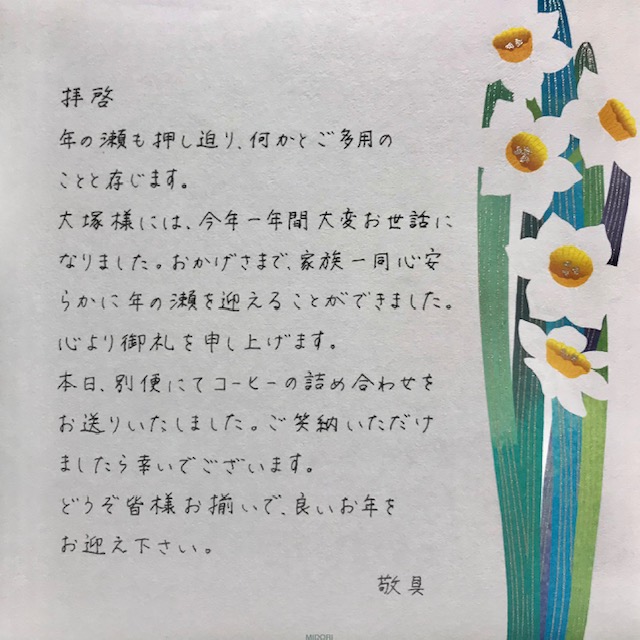 拝啓
年の瀬も押し迫り、何かとご多用の
ことと存じます。
大塚様には、今年一年間大変お世話に
なりました。おかげさまで、家族一同心安
らかに年の瀬を迎えることができました。
心より御礼を申し上げます。
本日、別便にてコーヒーの詰め合わせを
お送りいたしました。ご笑納いただけ
ましたら幸いでございます。
どうぞ皆様お揃いで、良いお年を
お迎え下さい。
敬具
MIDORI